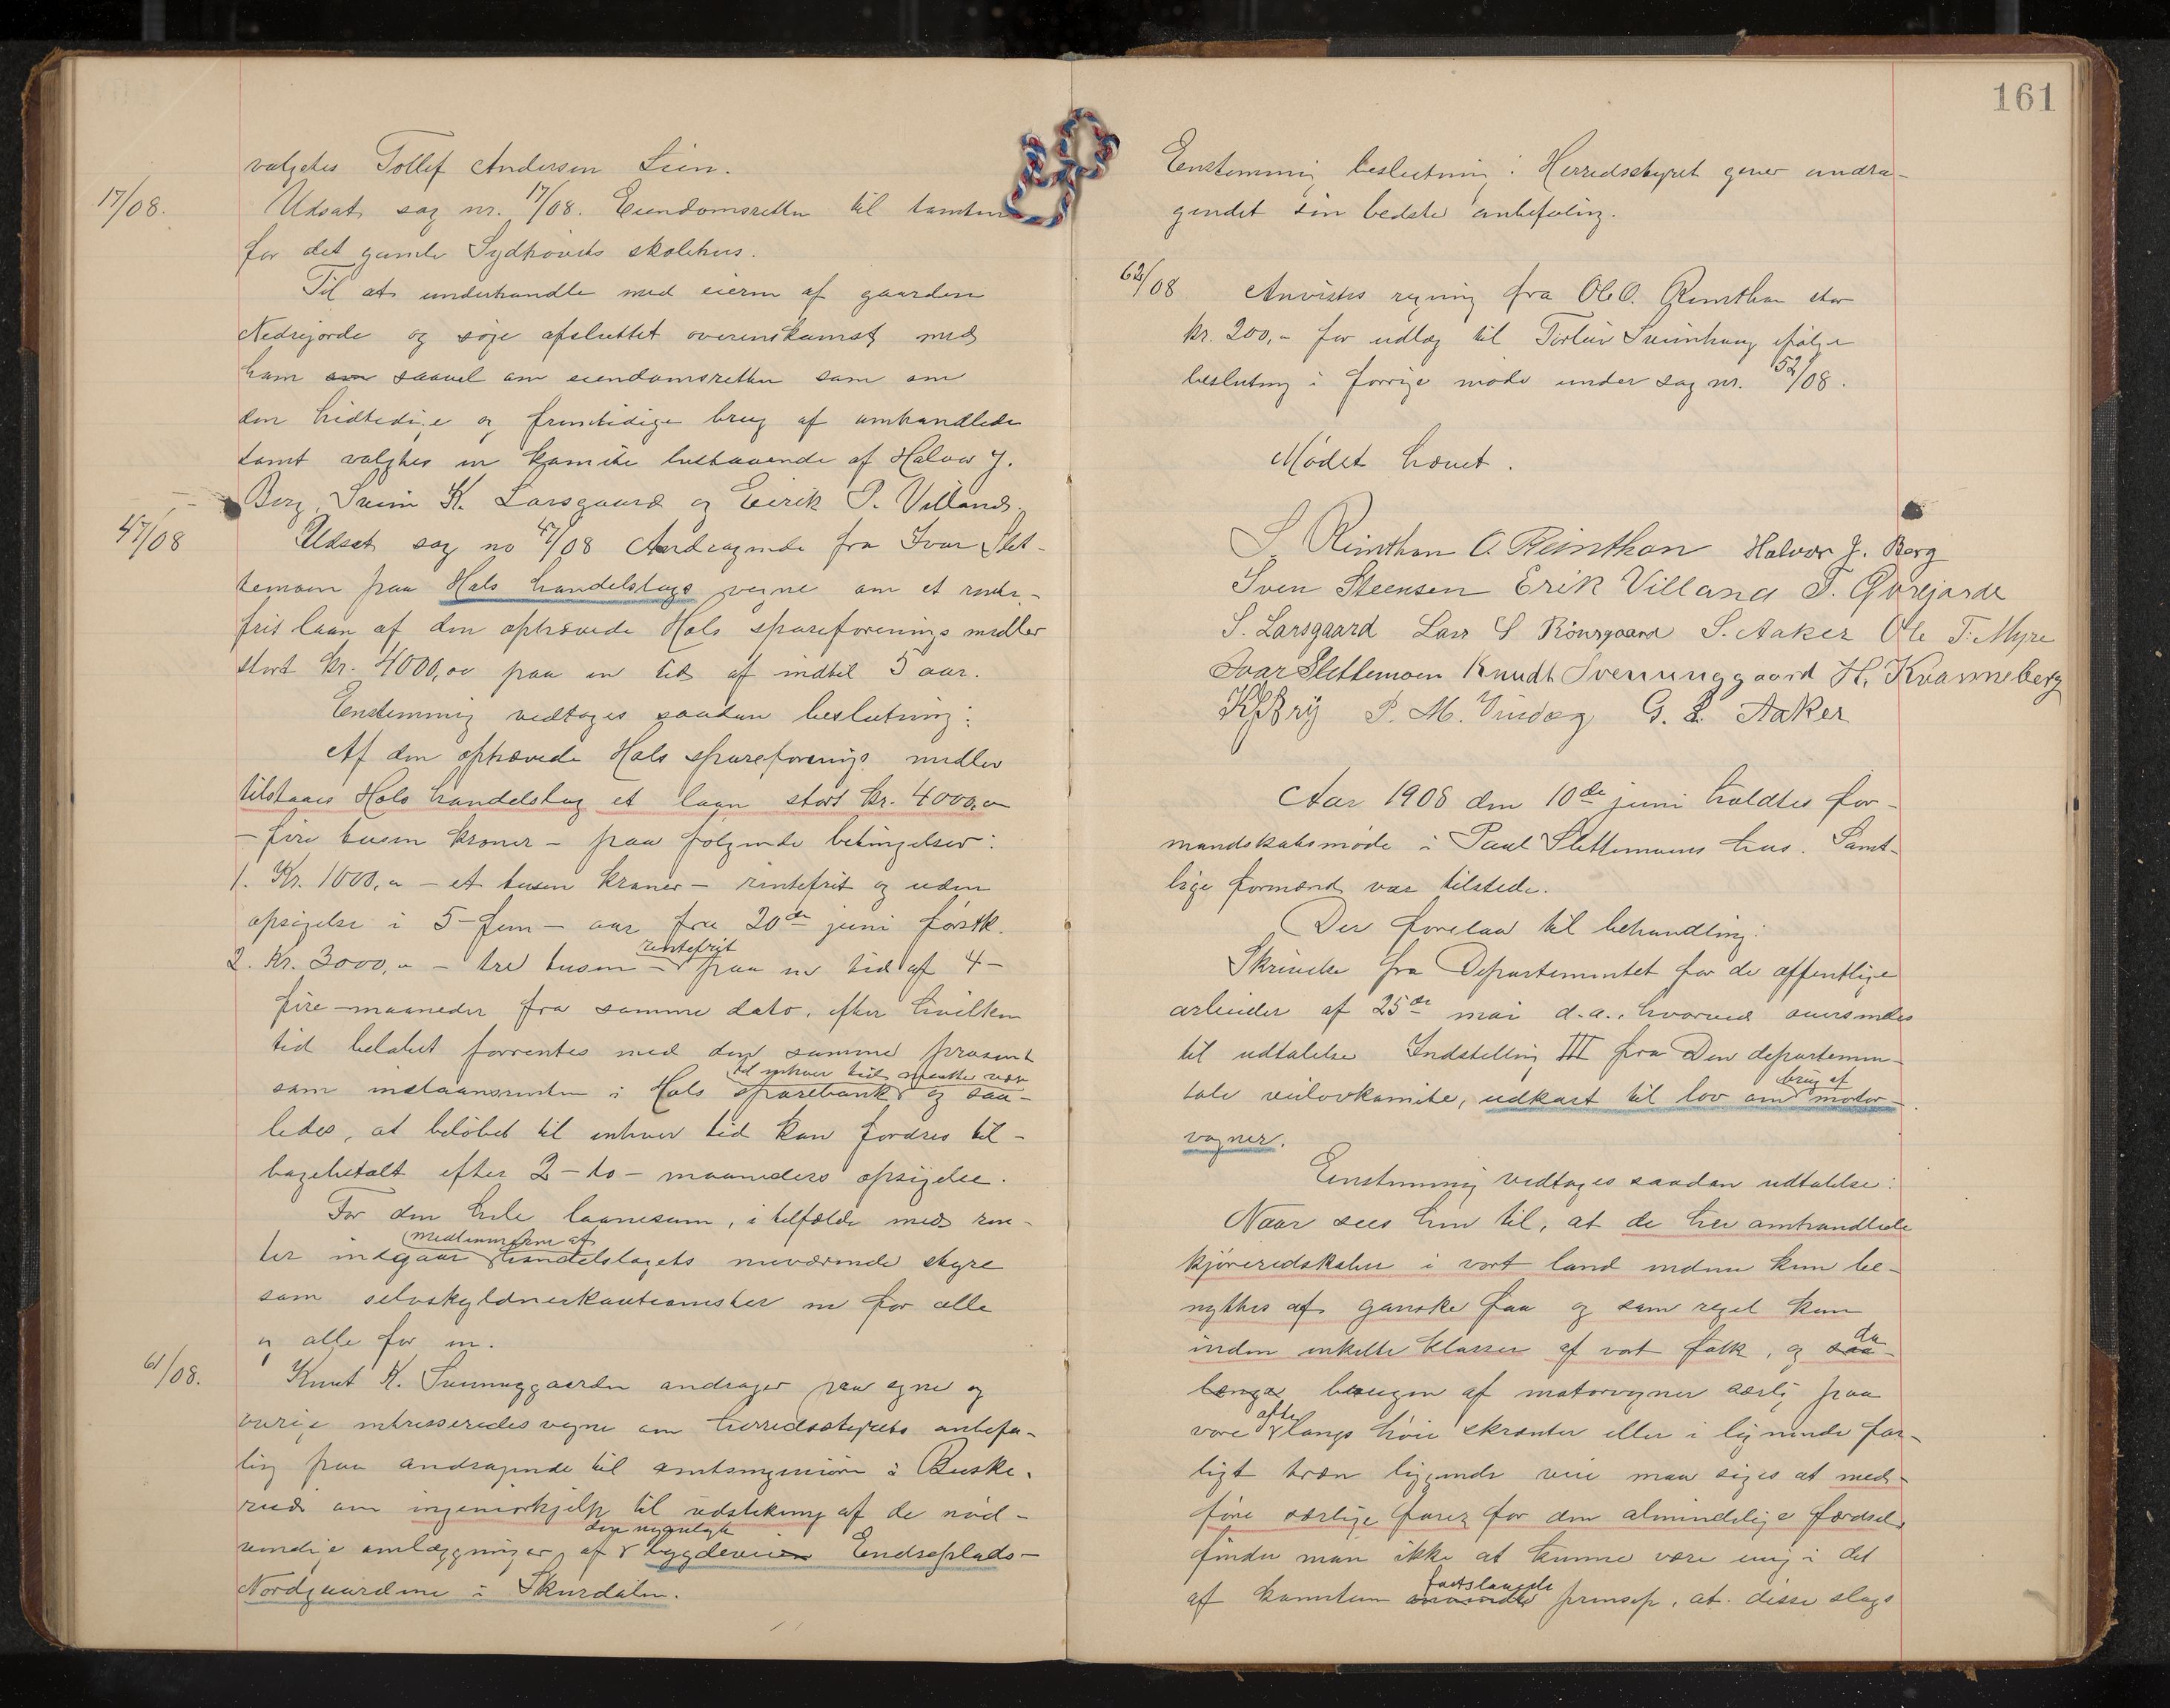 161
valgtes Tollef Andersen Lien.
17/08.
Udsat sag nr. 17/08. Eiendomsretten til tomten
for det gamle Sydhovets skolehus.
Til at underhandle med eieren af gaarden
Nedregjorde og søge afsluttet overenskomst med
ham om saavel om eiendomsretten som om
den hidtidige og fremtidige brug af omhandlede
tomt valgtes en komite bestaaende af Halvor J.
Berg, Svein K. Larsgaard og Eirik P. Villand.
47/08
Udsat sag no 47/08 Andragende fra Ivar Slet-
temoen paa Hols handelslags vegne om et rente-
frit laan af den ophævede Hols spareforenings midler
stort kr. 4000,00 paa en tid af indtil 5 aar.
Enstemmig vedtoges saadan beslutning:
Af den ophævede Hols spareforenings midler
tilstaaes Hols handelslag et laan stort kr. 4000,00
- fire tusen kroner - paa følgende betingelser:
1. Kr. 1000,00 - et tusen kroner - rentefrit og uden
opsigelse i 5 - fem - aar fra 20de juni førstk.
2. Kr. 3000,00 - tre tusen - rentefrit paa en tid af 4 -
fire - maaneder fra samme dato, efter hvilken
tid beløbet forrentes med den samme prosent
som indlaansrenten i Hols sparebank til enhver tid maatte være og saa-
ledes, at beløbet til enhver tid kan fordres til-
bagebetalt efter 2 - to - maaneders opsigelse.
For den hele laanesum, i tilfælde med ren-
ter indgaar medlemmerne af handelslagets nuværende styre
som selvskyldnerkautionister en for alle
og alle for en.
61/08.
Knut K. Svenunggaarden andrager paa egne og
øvrige interesseredes vegne om herredsstyrets anbefa-
ling paa andragende til amtsingeniøren i Buske-
rud om ingeniørhjelp til udstikning af de nød-
vendige omlægninger af den nuværende bygdeveien Endreplads-
Nordgaardene i Skurdalen.
Enstemmig beslutning: Herredsstyret giver andra-
gendet sin bedste anbefaling.
62/08
Anvistes regning fra Ole O. Reinthon stor
kr. 200,- for udlæg til Torleiv Sveinhaug ifølge
beslutning i forrige møde under sag nr. 52/08.
Mødet hævet.
S. Reinthon O. Reinthon Halvor J. Berg
Sven Steensen Erik Villand T. Gvrejorde
S. Larsgaard Lars S Rønsgaard S. Aaker Ole T. Myre
Ivar Slettemoen Knudt Svenunggaard H. Kvanneberg
P. M. Vindeg G. L. Aaker
Aar 1908 den 10de juni holdtes for-
mandskabsmøde i Paul Slettemoens hus. Samt-
lige formænd var tilstede.
Der forelaa til behandling:
Skrivelse fra Departementet for de offentlige
arbeider af 25de mai d.a., hvorved oversendes
til udtalelse Indstilling III fra Den departemen-
tale veilovkomite, udkast til lov om brug af motor-
vogner.
Enstemmig vedtoges saadan udtalelse:
Naar sees hen til, at de her omhandlede
kjøreredskaber i vort land endnu kun be-
nyttes af ganske faa og som regel kun
inden enkelte klasser af vort folk, og da saa-
længe brugen af motorvogner særlig paa
vore ofte langs høie skrænter eller i lignende far-
ligt træn liggende veie maa siges at med-
føre særlige farer for den almindelige færdsel,
finder man ikke at kunne være enig i det
af komiteen fastslaaede prinsip, at disse slags